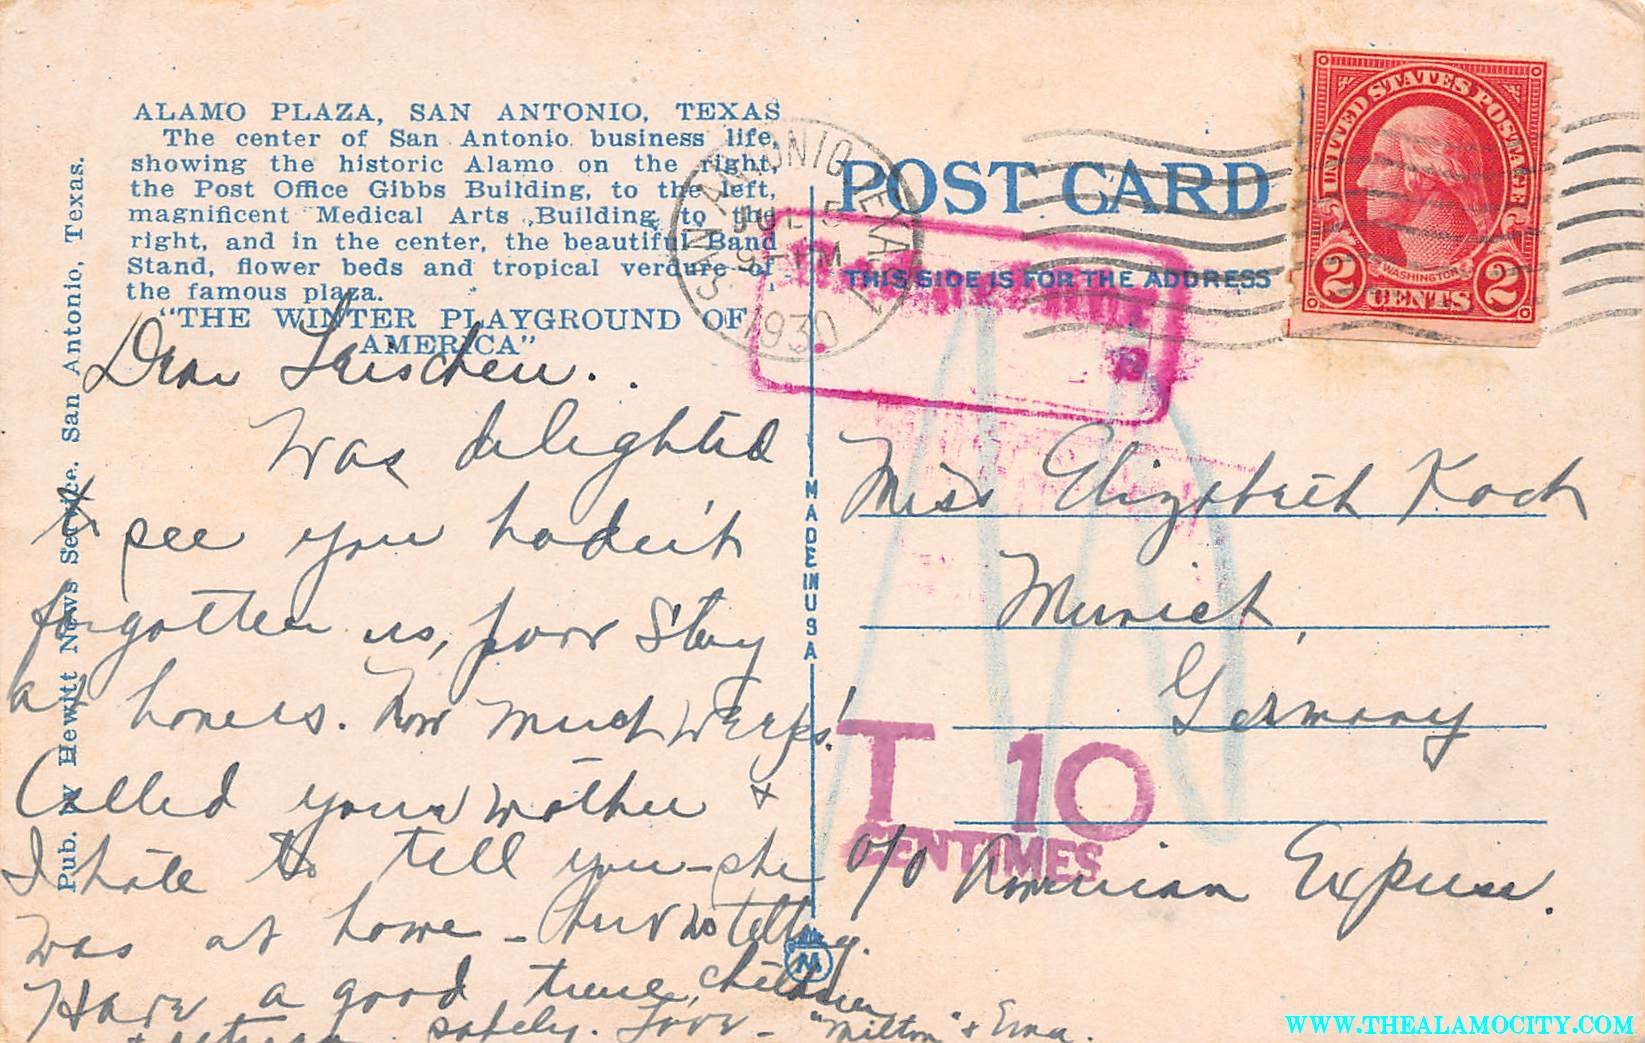 ALAMO PLAZA, SAN ANTONIO, TEXAS
The center of San Antonio business life,
showing the historic Alamo on the right,
the Post Office Gibbs Building, to the left,
magnificent Medical Arts Building to the
right, and in the center, the beautiful Band
Stand, flower beds and tropical verdure of
the famous plaza.
"THE WINTER PLAYGROUND OF
AMERICA"
Pub. by Hewitt News Service, San Antonio, Texas.
Dear
Was delighted
to see you hadn't
forgotten us, poor Stay
at homers. How much
Called your mother &
I hate to tell you - she
was at home - no telling.
Have a good time, children
& return safely. Love - "Milton" & Erna.
MADE IN USA
SAN ANTONIO, TEXAS
JUL 5
PM
1930
POST CARD
THIS SIDE IS FOR THE ADDRESS
UNITED STATES POSTAGE
WASHINGTON
2 CENTS 2
Miss Elizabeth Koch
Munich,
Germany
T 10
CENTIMES
c/o American Express.
WWW.THEALAMOCITY.COM